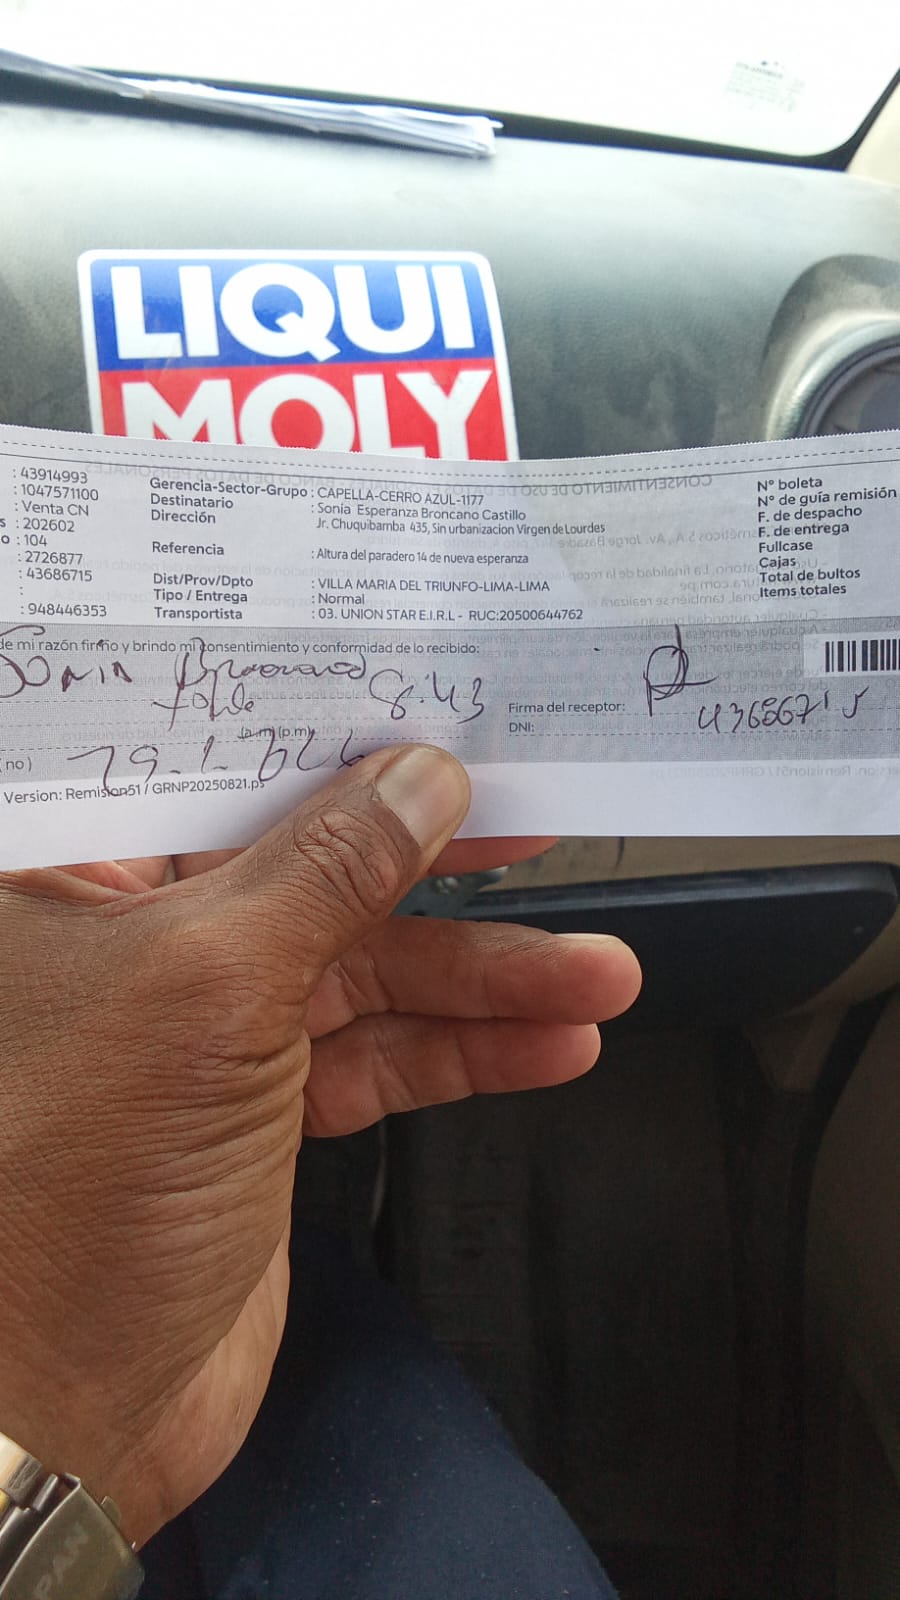 LIQUI
MOLY
: 43914993
: 1047571100
: Venta CN
s : 202602
o : 104
: 2726877
: 43686715
:
: 948446353
Gerencia-Sector-Grupo : CAPELLA-CERRO AZUL-1177
Destinatario : Sonía Esperanza Broncano Castillo
Dirección Jr. Chuquibamba 435, Sin urbanizacion Virgen de Lourdes
Referencia : Altura del paradero 14 de nueva esperanza
Dist/Prov/Dpto : VILLA MARIA DEL TRIUNFO-LIMA-LIMA
Tipo / Entrega : Normal
Transportista : 03. UNION STAR E.I.R.L - RUC:20500644762
N° boleta
N° de guía remisión
F. de despacho
F. de entrega
Fullcase
Cajas
Total de bultos
Items totales
de mi razón firmo y brindo mi consentimiento y conformidad de lo recibido:
Sonia
8:43
(a.m) (p.m)
Firma del receptor:
DNI: 43686715
no)
Version: Remision51 / GRNP20250821.ps